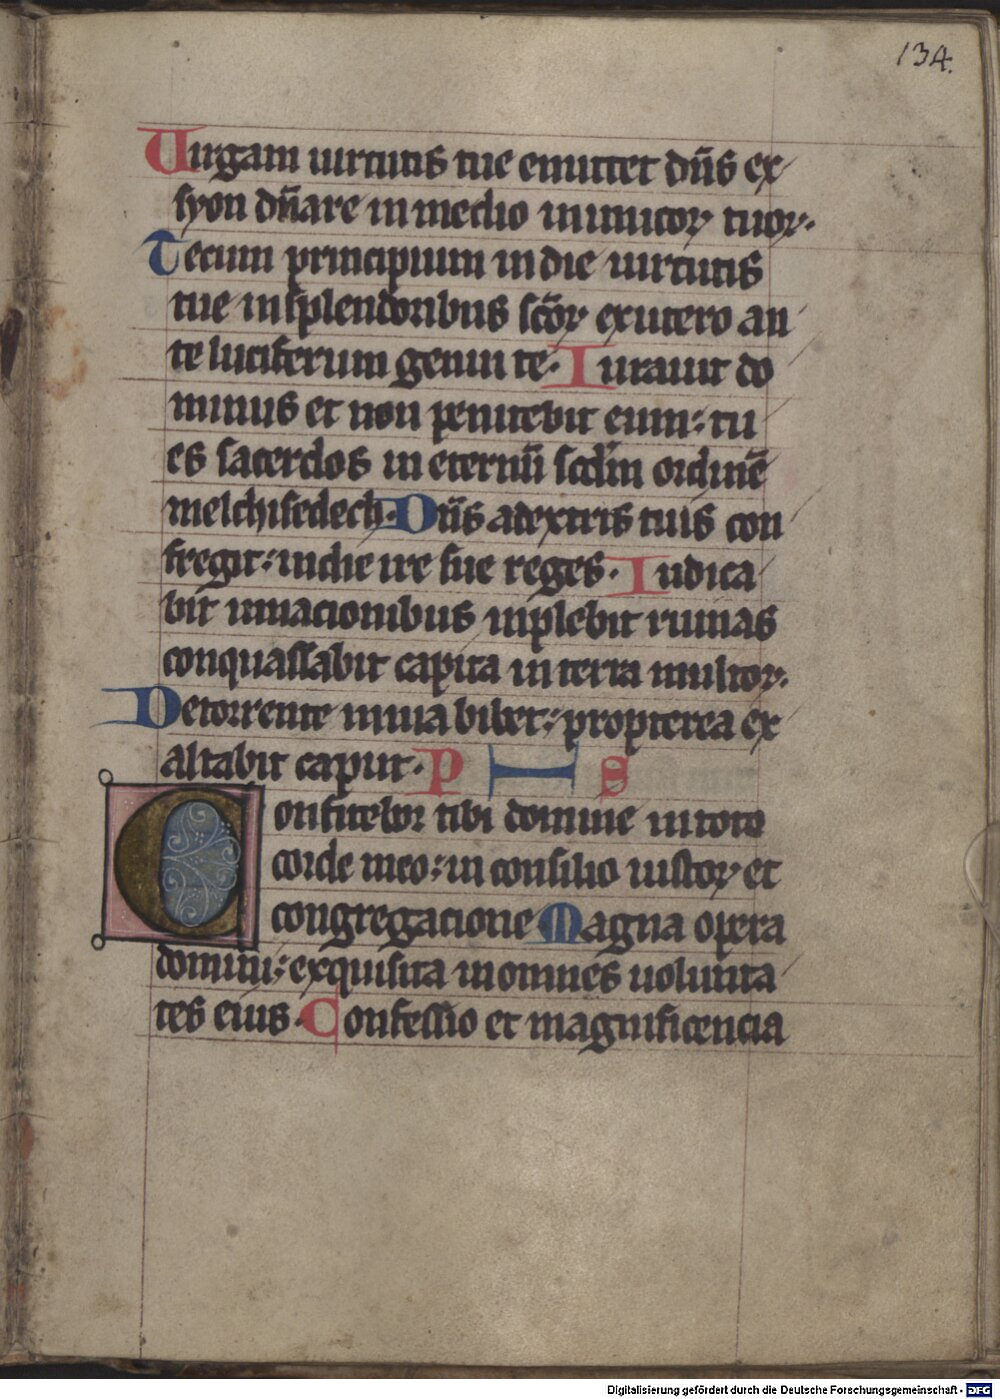 134.
Uirgam uirtutis tue emittet dn̄s ex
syon dn̄are in medio inimicoꝝ tuoꝝ.
Tecum principium in die uirtutis
tue in splendoribus sc̄oꝝ ex utero an
te luciferum genui te. Iurauit do
minus et non penitebit eum: tu
es sacerdos in eternū scdm̄ ordinē
melchisedech. Dn̄s a dextris tuis con
fregit: in die ire sue reges. Iudica
bit in nacionibus inplebit ruinas
conquassabit capita in terra multoꝝ.
De torrente in uia bibet: propterea ex
altabit caput. P H S
Confitebor tibi domine in toto
corde meo: in consilio iustoꝝ et
congregacione Magna opera
domini: exquisita in omnes uolunta
tes eius. Confessio et magnificencia
Digitalisierung gefördert durch die Deutsche Forschungsgemeinschaft - DFG